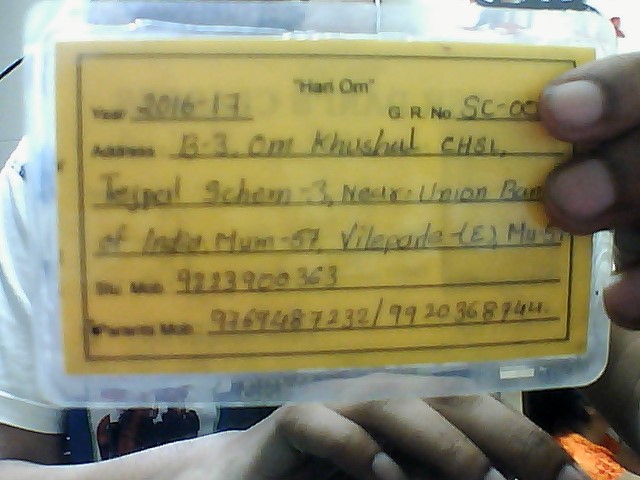 "Hari Om"
Year 2016-17. G. R. No SC-00
Address B-3, Om Khushal CHSL,
Tejpal Schem-3, Near-Union Ban
of India Mum-57, Vileparle-(E), Mu-57
Stu. Mob. 9223900363
Parents Mob. 9769487232/9920368944.